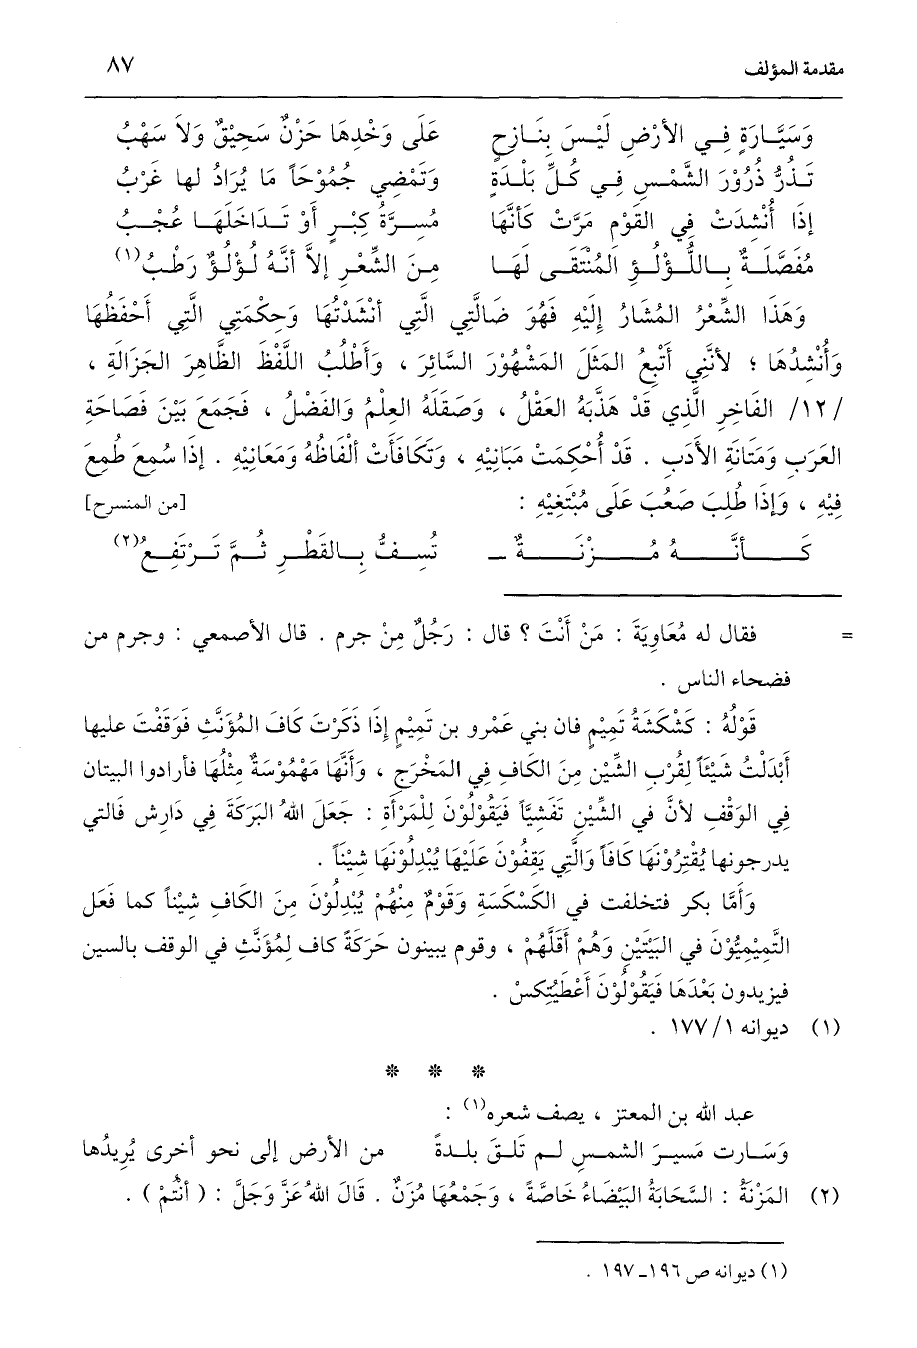 مقدمة المؤلف ٨٧
وَسَيَّارَةٍ فِي الأَرْضِ لَيْسَ بِنَازِحٍ عَلَى وَخْدِهَا حَزْنٌ سَحِيْقٌ وَلاَ سَهْبُ
تَذُرُّ ذُرُوْرَ الشَّمْسِ فِي كُلِّ بَلْدَةٍ وَتَمْضِي جُمُوْحَاً مَا يُرَادُ لها غَرْبُ
إذَا أُنْشِدَتْ فِي القَوْمِ مَرَّتْ كَأنَّهَا مُسِرَّةُ كِبْرٍ أوْ تَدَاخَلَهَا عُجْبُ
مُفَصَّلَةٌ بِاللُّؤْلُؤِ المُنْتَقَى لَهَا مِنَ الشِّعْرِ إلاَّ أنَّهُ لُؤلُؤٌ رَطْبُ(١)
وَهَذَا الشِّعْرُ المُشَارُ إلَيْهِ فَهُوَ ضَالَّتِي الَّتِي أنْشَدْتُهَا وَحِكْمَتِي الَّتِي أحْفَظُهَا
وَأُنْشِدُهَا ؛ لأنَّنِي أتْبِعُ المَثَلَ المَشْهُوْرَ السَّائِرَ ، وَأَطْلُبُ اللَّفْظَ الظَّاهِرَ الجَزَالَةِ ،
/١٢/ الفَاخِرِ الَّذِي قَدْ هَذَّبَهُ العَقْلُ ، وَصَقَلَهُ العِلْمُ وَالفَضْلُ ، فَجَمَعَ بَيْنَ فَصَاحَةِ
العَرَبِ وَمَتَانَةِ الأدَبِ . قَدْ أُحْكِمَتْ مَبَانِيْهِ ، وَتَكَافَأَتْ ألْفَاظُهُ وَمَعَانِيْهِ . إذَا سُمِعَ طُمِعَ
فِيْهِ ، وَإذَا طُلِبَ صَعُبَ عَلَى مُبْتَغِيْهِ : [من المنسرح]
كَأنَّهُ مُزْنَةٌ ـ تُسِفُّ بِالقَطْرِ ثُمَّ تَرْتَفِعُ(٢)
= فقال له مُعَاوِيَةَ : مَنْ أنْتَ ؟ قال : رَجُلٌ مِنْ جرم . قال الأصمعي : وجرم من
فضحاء الناس .
قَوْلُهُ : كَشْكَشَةُ تَمِيْمٍ فان بني عَمْرو بن تَمِيْمٍ إذَا ذَكَرْتَ كَافَ المُؤَنَّثِ فَوَقَفْتَ عليها
أَبْدَلْتُ شَيْئَاً لِقُرْبِ الشِّيْنِ مِنَ الكَافِ فِي المَخْرَجِ ، وَأنَّهَا مَهْمُوْسَةٌ مِثْلُهَا فأرادوا البيتان
فِي الوَقْفِ لأنَّ في الشِّيْنِ تَفَشِيَّاً فَيَقُوْلُوْنَ لِلْمَرْأةِ : جَعَلَ اللهُ البَرَكَةَ فِي دَارِشِ فَالتي
يدرجونها يُقْتِرُوْنَهَا كَافَاً وَالَّتِي يَقِفُوْنَ عَلَيْهَا يُبْدِلُوْنَهَا شِيْنَاً .
وَأمَّا بكر فتخلفت في الكَسْكَسَةِ وَقَوْمٌ مِنْهُمْ يُبْدِلُوْنَ مِنَ الكَافِ شِيْناً كما فَعَل
التَّمِيْمِيُّوْنَ في البَيْتَيْنِ وَهُمْ أَقَلُّهُمْ ، وقوم يبينون حَرَكَةً كاف لِمُؤَنَّثِ في الوقف بالسين
فيزيدون بَعْدَهَا فَيَقُوْلُوْنَ أعْطَيْتِكسْ .
(١) ديوانه ١/ ١٧٧ .
* * *
عبد الله بن المعتز ، يصف شعره(١) :
وَسَارت مَسِيرَ الشمسِ لم تَلقَ بلدةً من الأرض إلى نحو أخرى يُرِيدُها
(٢) المَزْنَةُ : السَّحَابَةُ البَيْضَاءُ خَاصَّةً ، وَجَمْعُهَا مُزَنٌ . قَالَ اللهُ عَزَّ وَجَلَّ : ( أنْتُمْ ) .
(١) ديوانه ص ١٩٦ـ ١٩٧ .